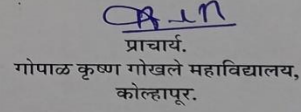 प्राचार्य.
गोपाळ कृष्ण गोखले महाविद्यालय,
कोल्हापूर.